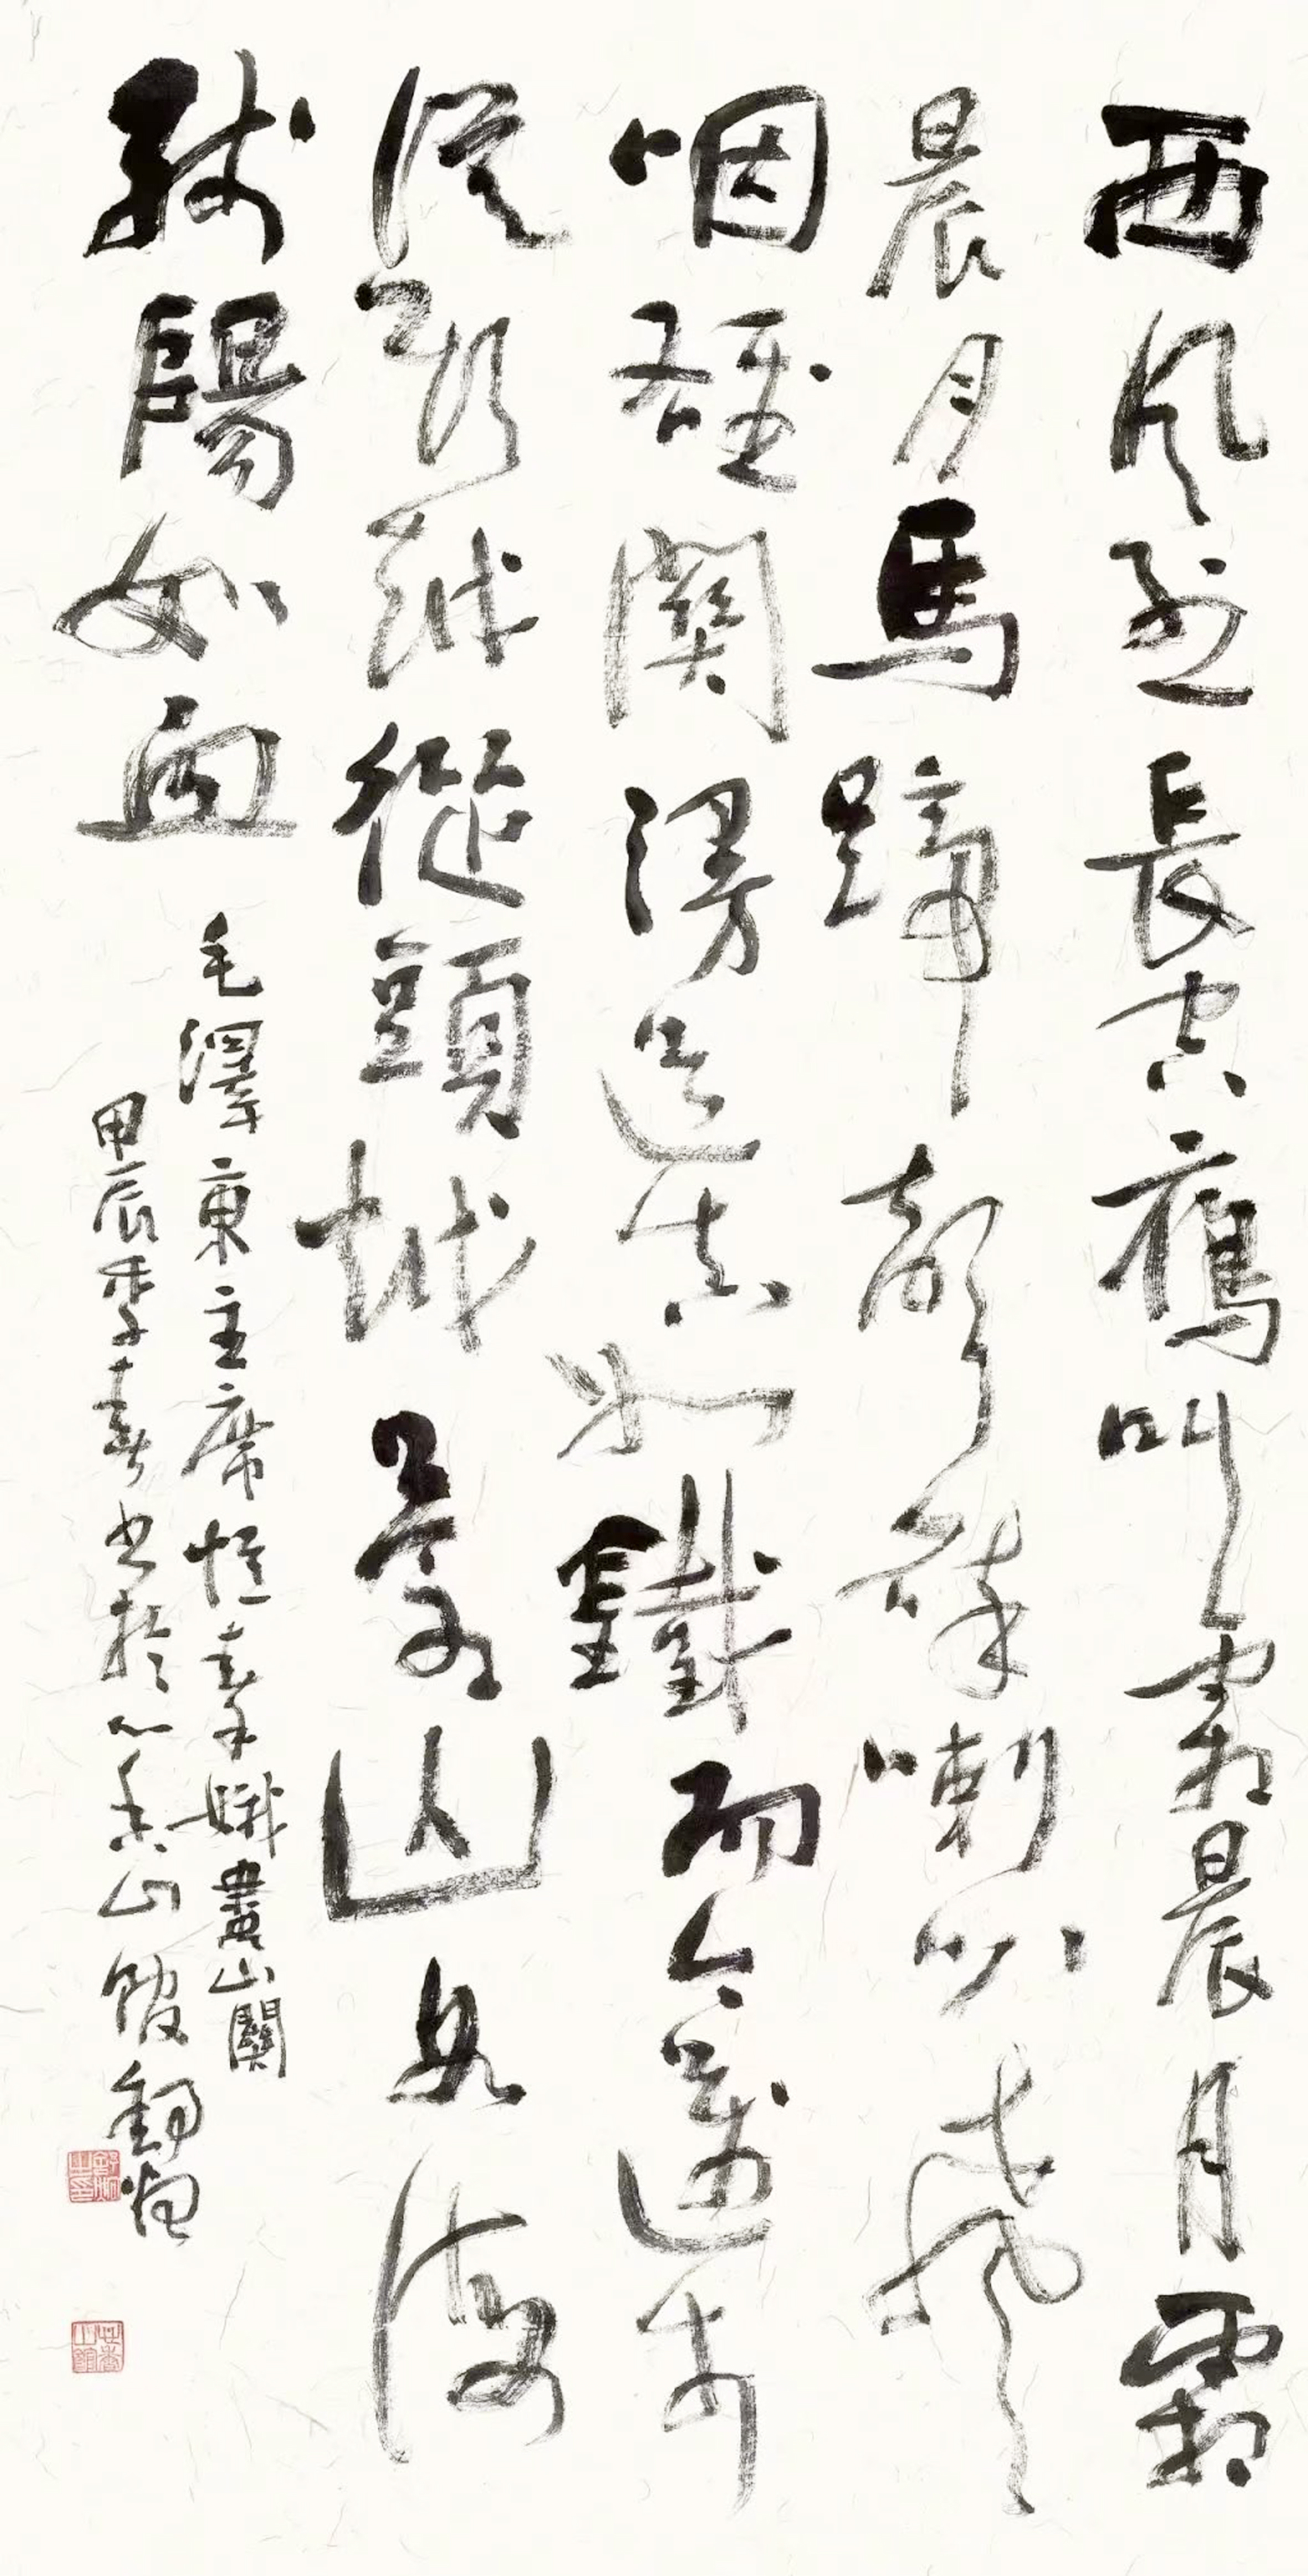 西风烈長空鴈叫霜晨月霜
晨月馬蹄聲碎喇叭聲
咽雄關漫道真如鐵而今邁步
從頭越從頭越蒼山如海
殘陽如血
毛澤東主席憶秦娥婁山關
甲辰季春書於心香山館舒炯